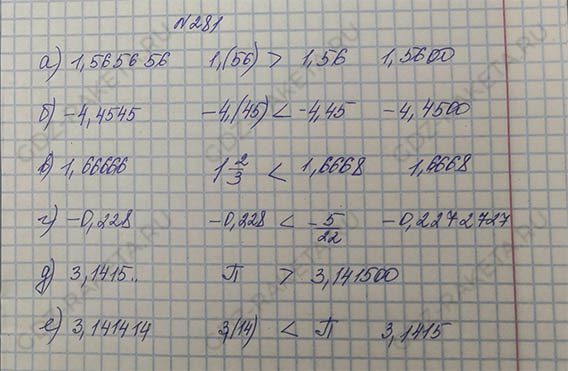 №281
а) 1,565656 1,(56) > 1,56 1,5600
б) -4,4545 -4,(45) < -4,45 -4,4500
в) 1,66666 1 2/3 < 1,6668 1,6668
г) -0,228 -0,228 < -5/22 -0,2272727
д) 3,1415.. π > 3,141500
е) 3,141414 3,(14) < π 3,1415
GDZ-RAKETA.RU